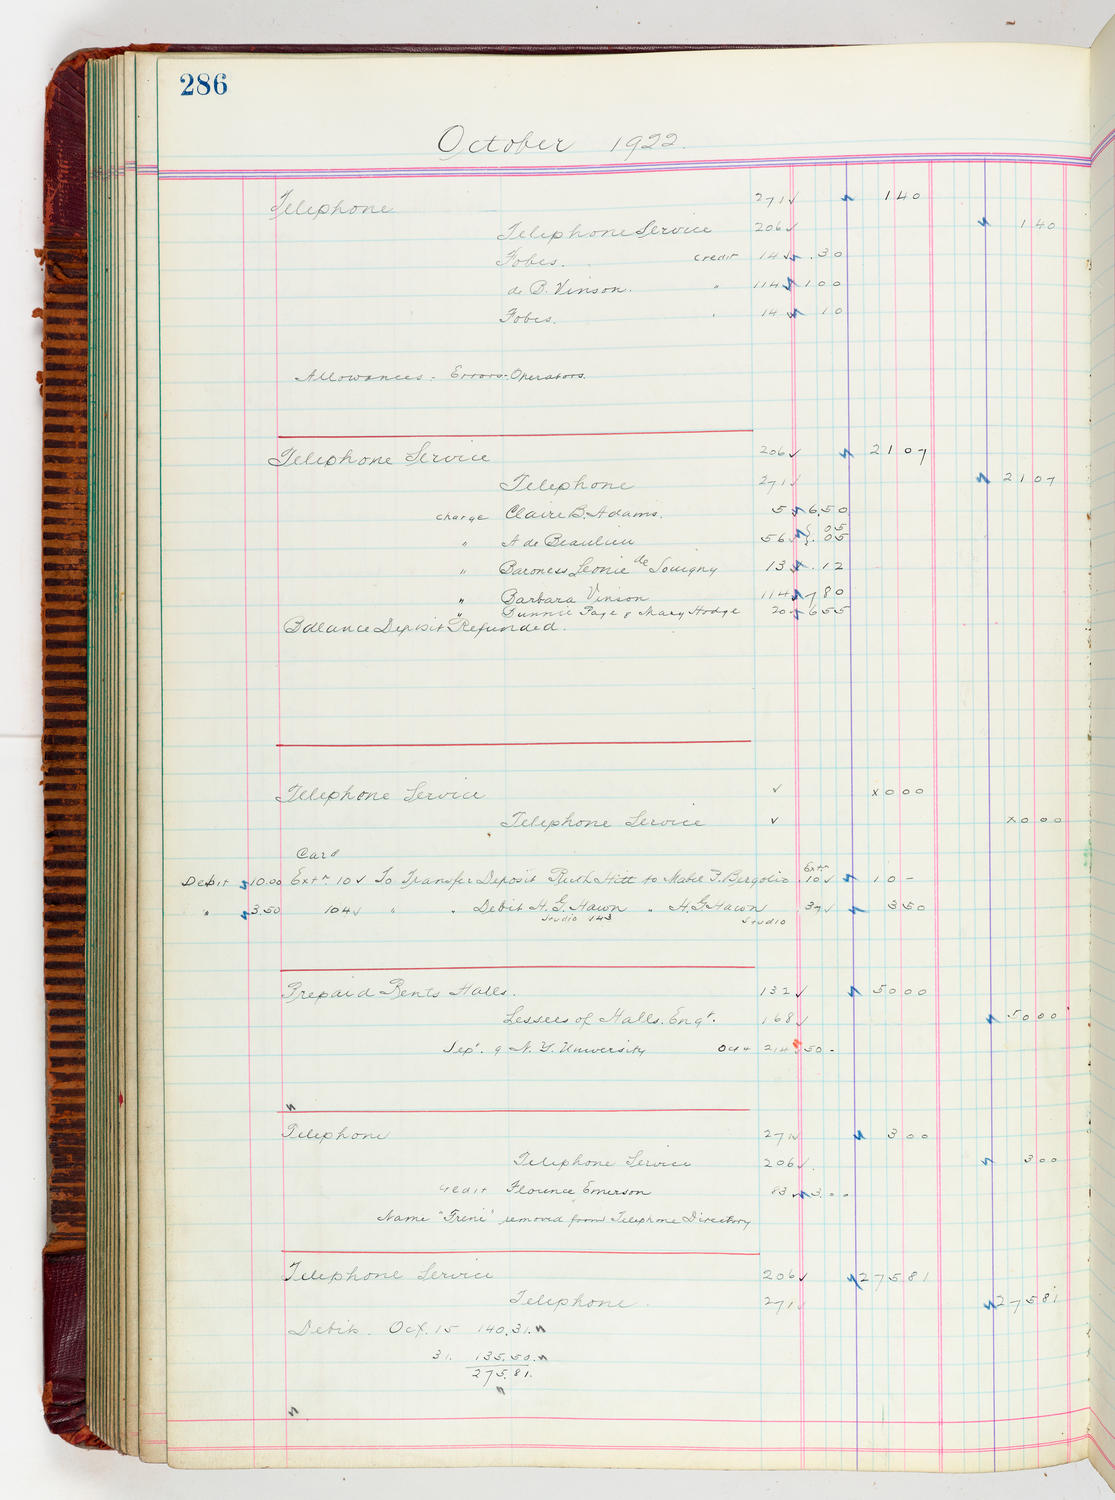 286
October 1922.
Telephone 271 ✓ 140
Telephone Service 206 ✓ 140
Fobes. credit 14 ✓ .30
de B. Vinson. " 114 ✓ 100
Fobes. " 14 10
Allowances - Errors - Operators.
Telephone Service 206 ✓ 2107
Telephone 271 ✓ 2107
charge Claire B. Adams. 5 ✓ 6.50
" A de Beaulieu 56 ✓ .05 .05
" Baroness Leonie de Souigny 13 ✓ .12
" Barbara Vinson 114 ✓ 780
" Bunnie Page & Mary Hodge 20 ✓ 655
Balance Deposit Refunded.
Telephone Service ✓ x000
Telephone Service ✓ x000
Card
Debit 10.00 Extn 10 ✓ To Transfer Deposit Ruth Hitt to Mable F. Bergolio Extn 10 ✓ 10 -
" 3.50 104 ✓ " " Debit H. G. Hawn " H. G Hawn 37 ✓ 350
Studio 143 Studio
Prepaid Rents Halls. 132 ✓ 5000
Lessees of Halls. Engt. 168 ✓ 5000
Sept. 9 N. Y. University Oct 214 50 -
Telephone 271 ✓ 300
Telephone Service 206 ✓ 300
credit Florence Emerson 83 ✓ 3.00
Name "Freni" removed from Telephone Directory
Telephone Service 206 ✓ 27581
Telephone. 271 ✓ 27581
Debits. Oct. 15 140.31.
31. 135.50.
275.81.